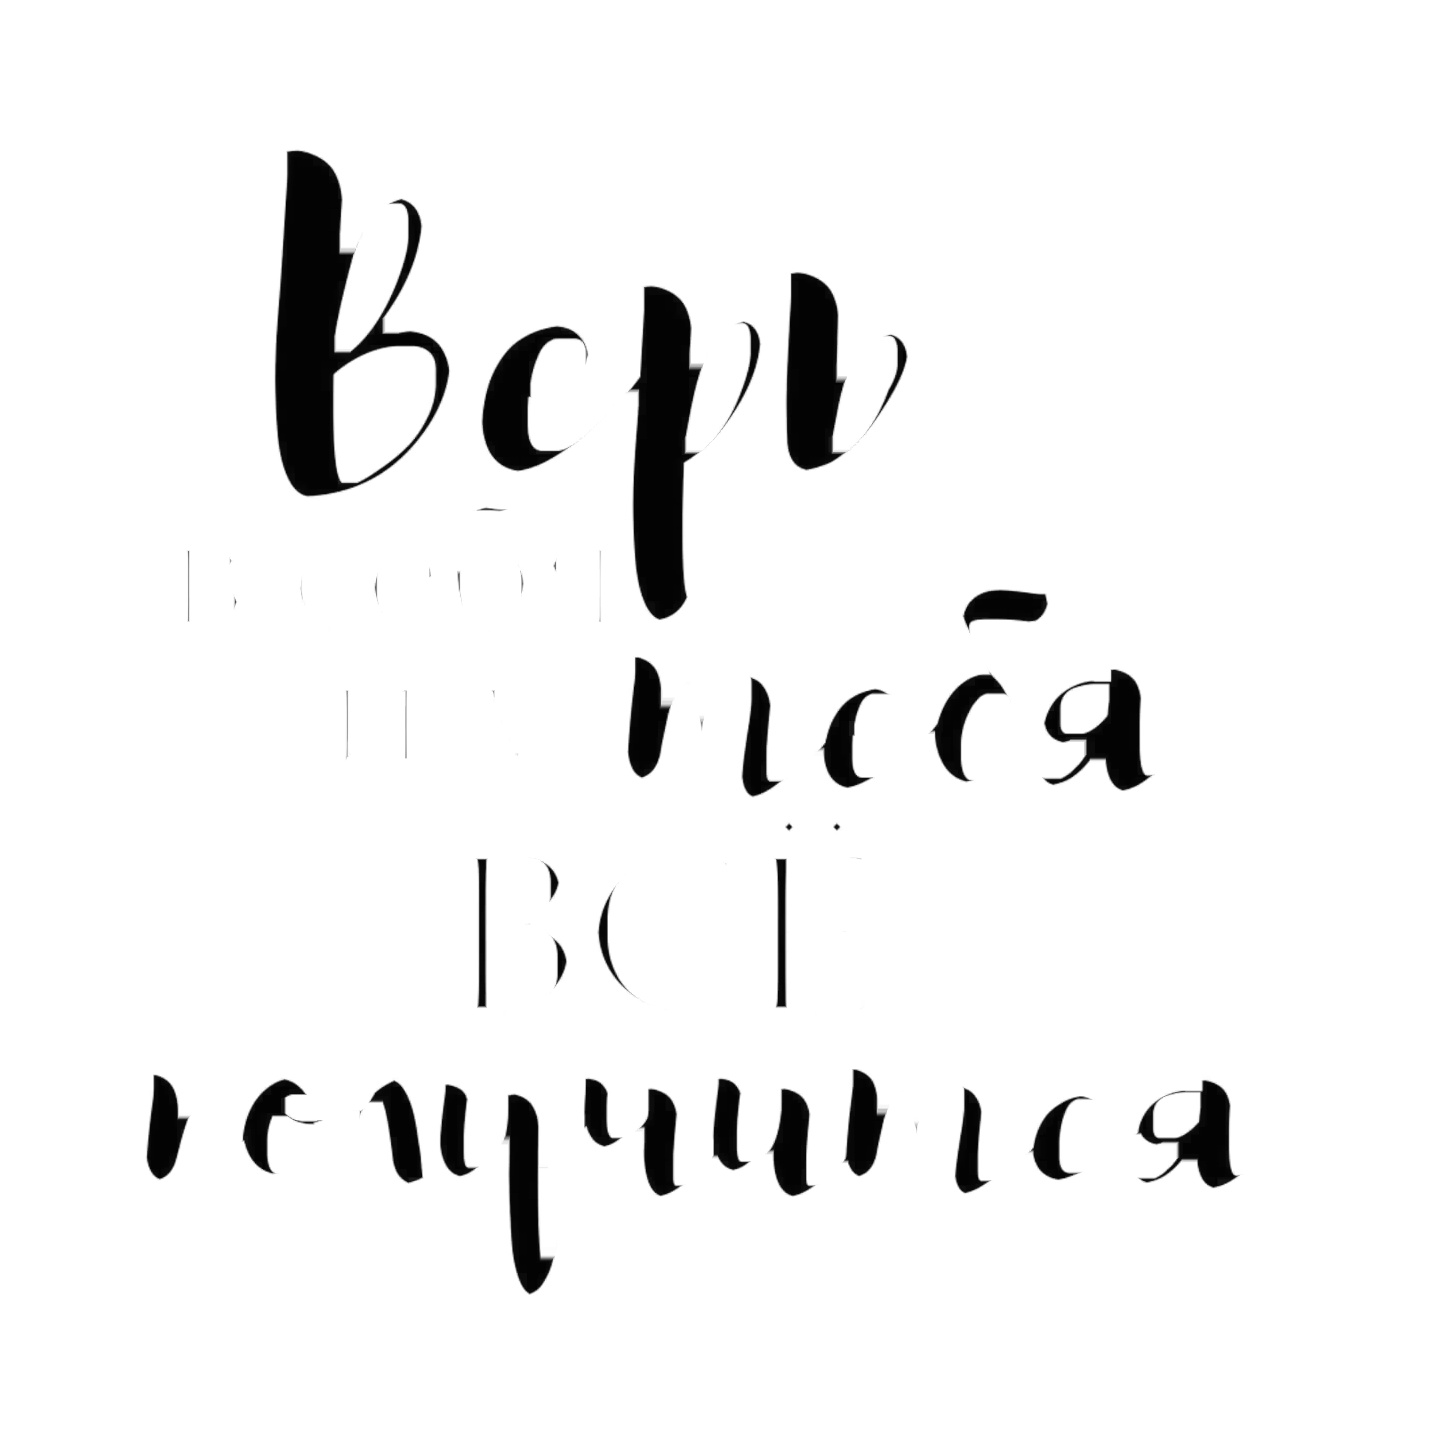 Верь
В СЕБЯ
И У тебя
ВСЁ
получится